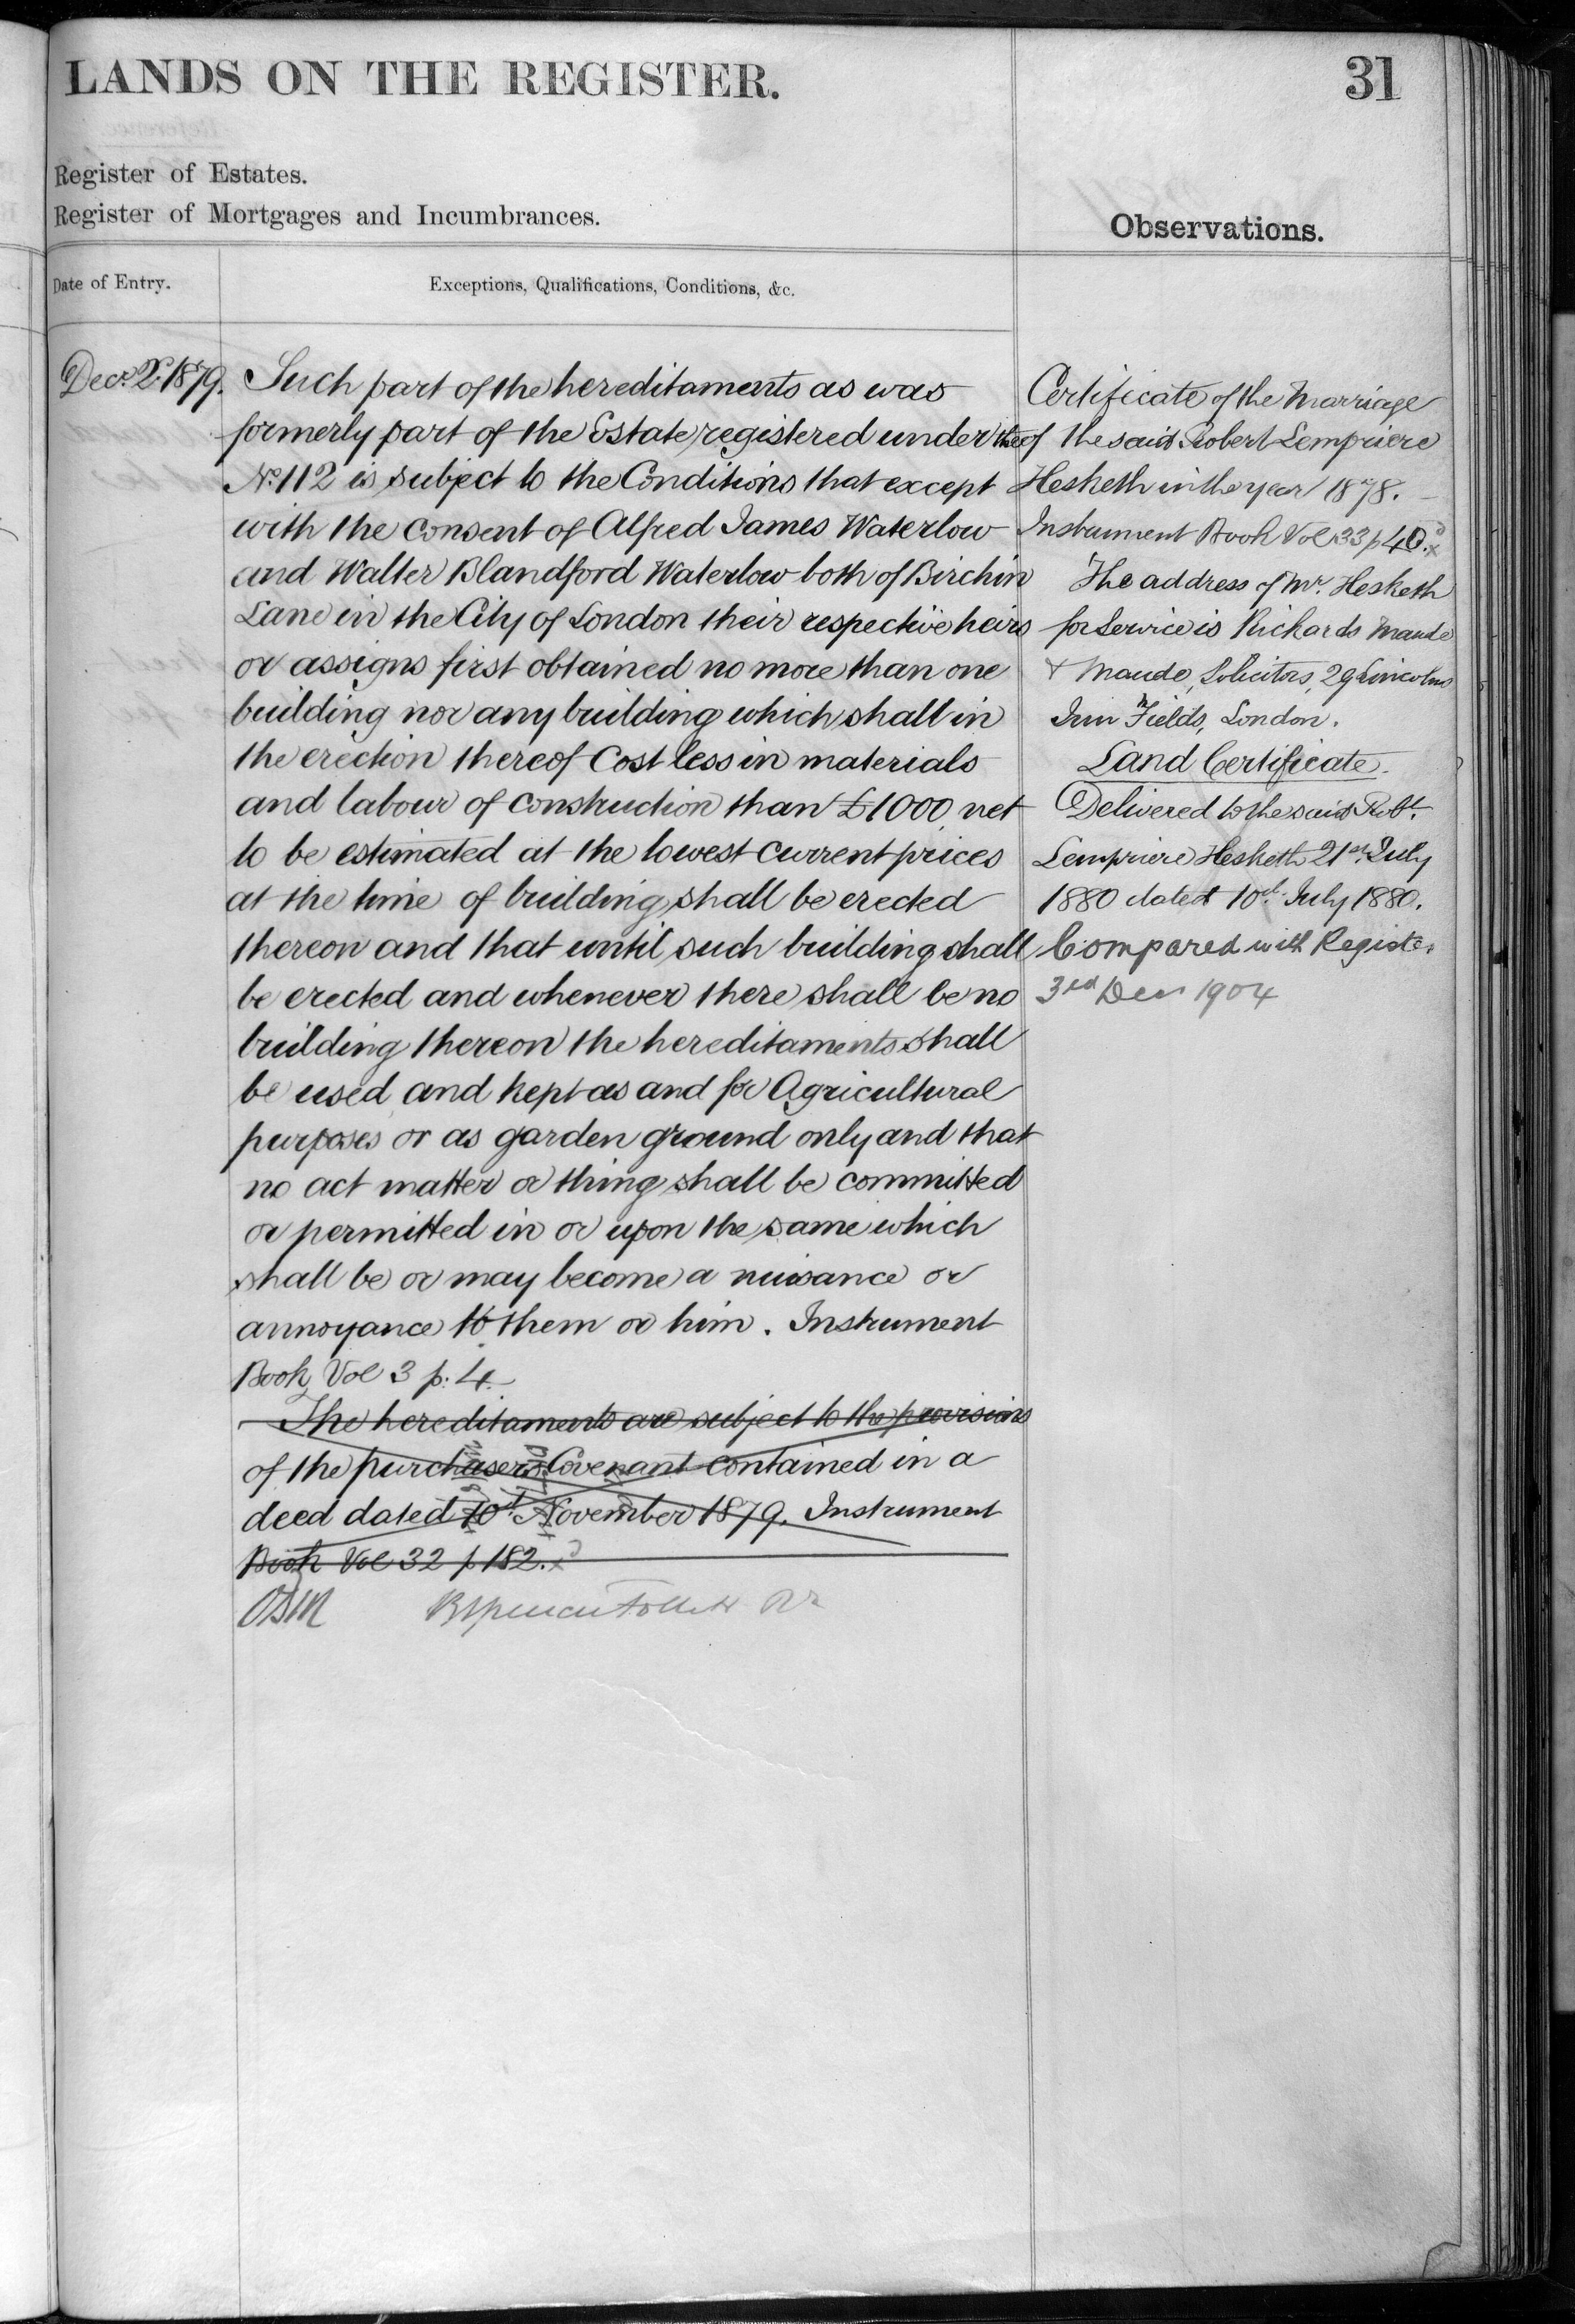 LANDS ON THE REGISTER.
31
Register of Estates.
Register of Mortgages and Incumbrances.
Observations.
Date of Entry.
Exceptions, Qualifications, Conditions, &c.
Decr. 2d. 1879.
Such part of the hereditaments as was
formerly part of the Estate registered under the
No. 112 is subject to the Conditions that except
with the consent of Alfred James Waterlow
and Walter Blandford Waterlow both of Birchin
Lane in the City of London their respective heirs
or assigns first obtained no more than one
building nor any building which shall in
the erection thereof Cost less in materials
and labour of construction than £1000 net
to be estimated at the lowest current prices
at the time of building shall be erected
thereon and that until such building shall
be erected and whenever there shall be no
building thereon the hereditaments shall
be used and kept as and for Agricultural
purposes or as garden ground only and that
no act matter or thing shall be committed
or permitted in or upon the same which
shall be or may become a nuisance or
annoyance to them or him. Instrument
Book Vol 3 p. 4.
The hereditaments are subject to the provisions
of the purchasers Covenant contained in a
deed dated 10th November 1879. Instrument
Book Vol 32 p 182.
Certificate of the Marriage
of the said Robert Lempriere
Hesketh in the year 1878.
Instrument Book Vol 33 p 40.
The address of Mr. Hesketh
for Service is Rickards Maude
& Maude, Solicitors, 29 Lincolns
Inn Fields, London.
Land Certificate.
Delivered to the said Robt.
Lempriere Hesketh 21st July
1880 dated 10th July 1880.
Compared with Register
3rd Decr 1904